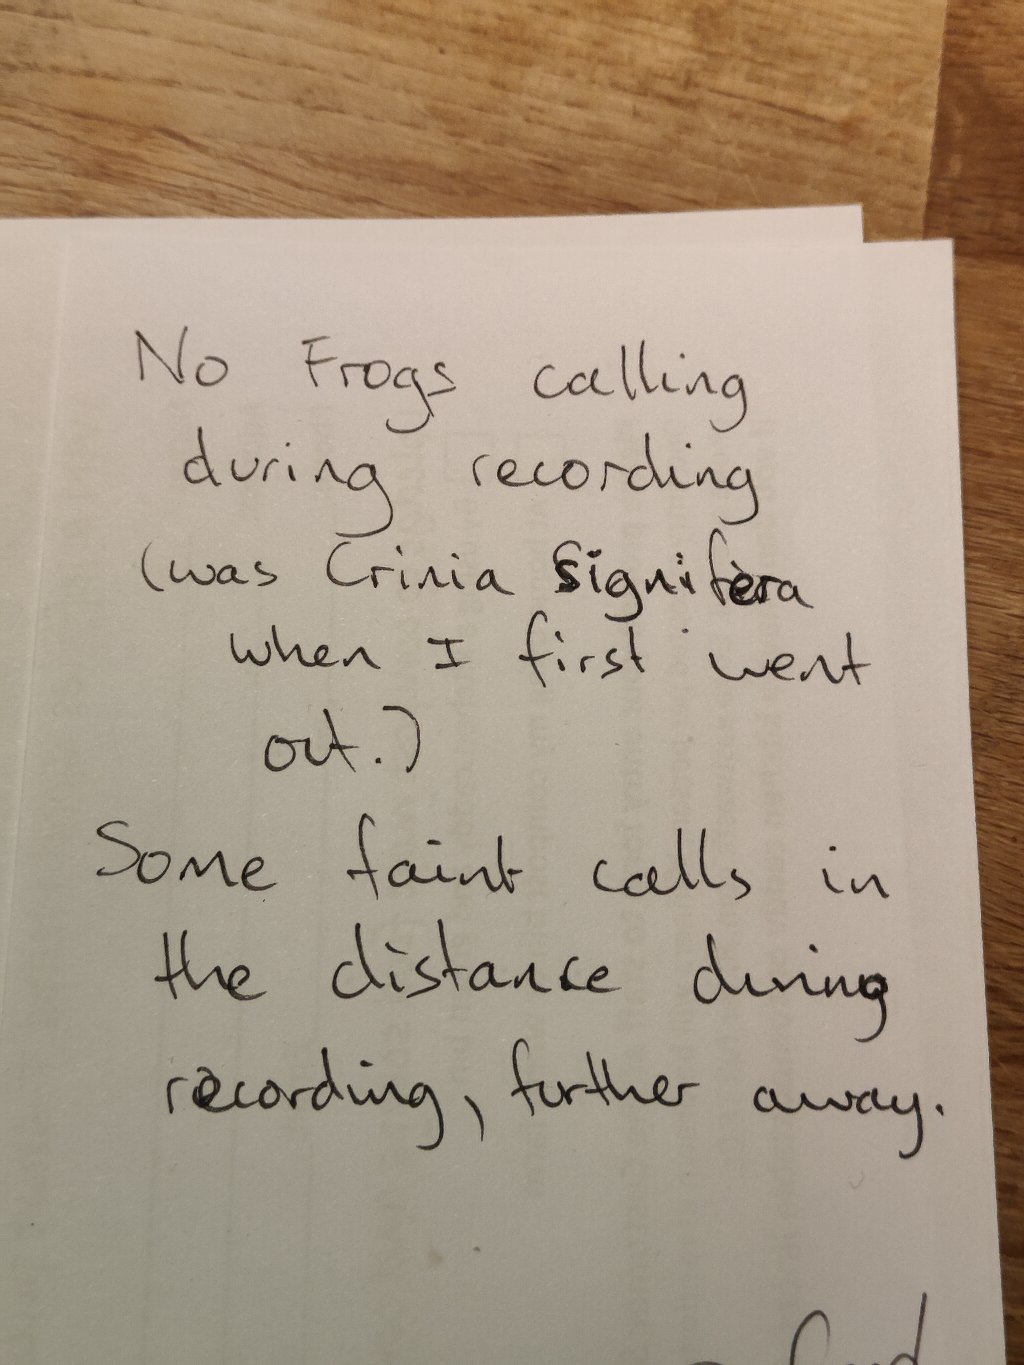 No Frogs calling
during recording
(was Crinia signifera
when I first went
out.)
Some faint calls in
the distance during
recording, further away.